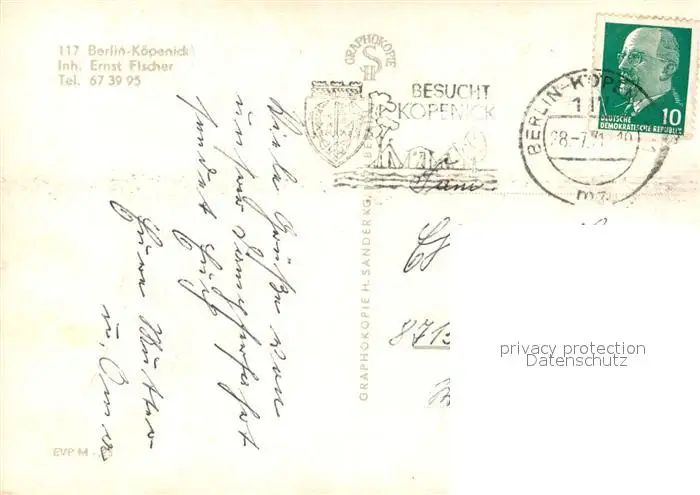 117 Berlin-Köpenick
Inh. Ernst Fischer
Tel. 67 39 95
GRAPHOKOPIE
H S
BESUCHT
KÖPENICK
BERLIN-KÖP
117
28.-7.71
DEUTSCHE
DEMOKRATISCHE REPUBLIK
10
Viele Grüße von
unserer Dampferfahrt
sendet Euch
Eure Mutter
u.
GRAPHOKOPIE H. SANDER KG,
Fam.
8713
EVP M
privacy protection
Datenschutz